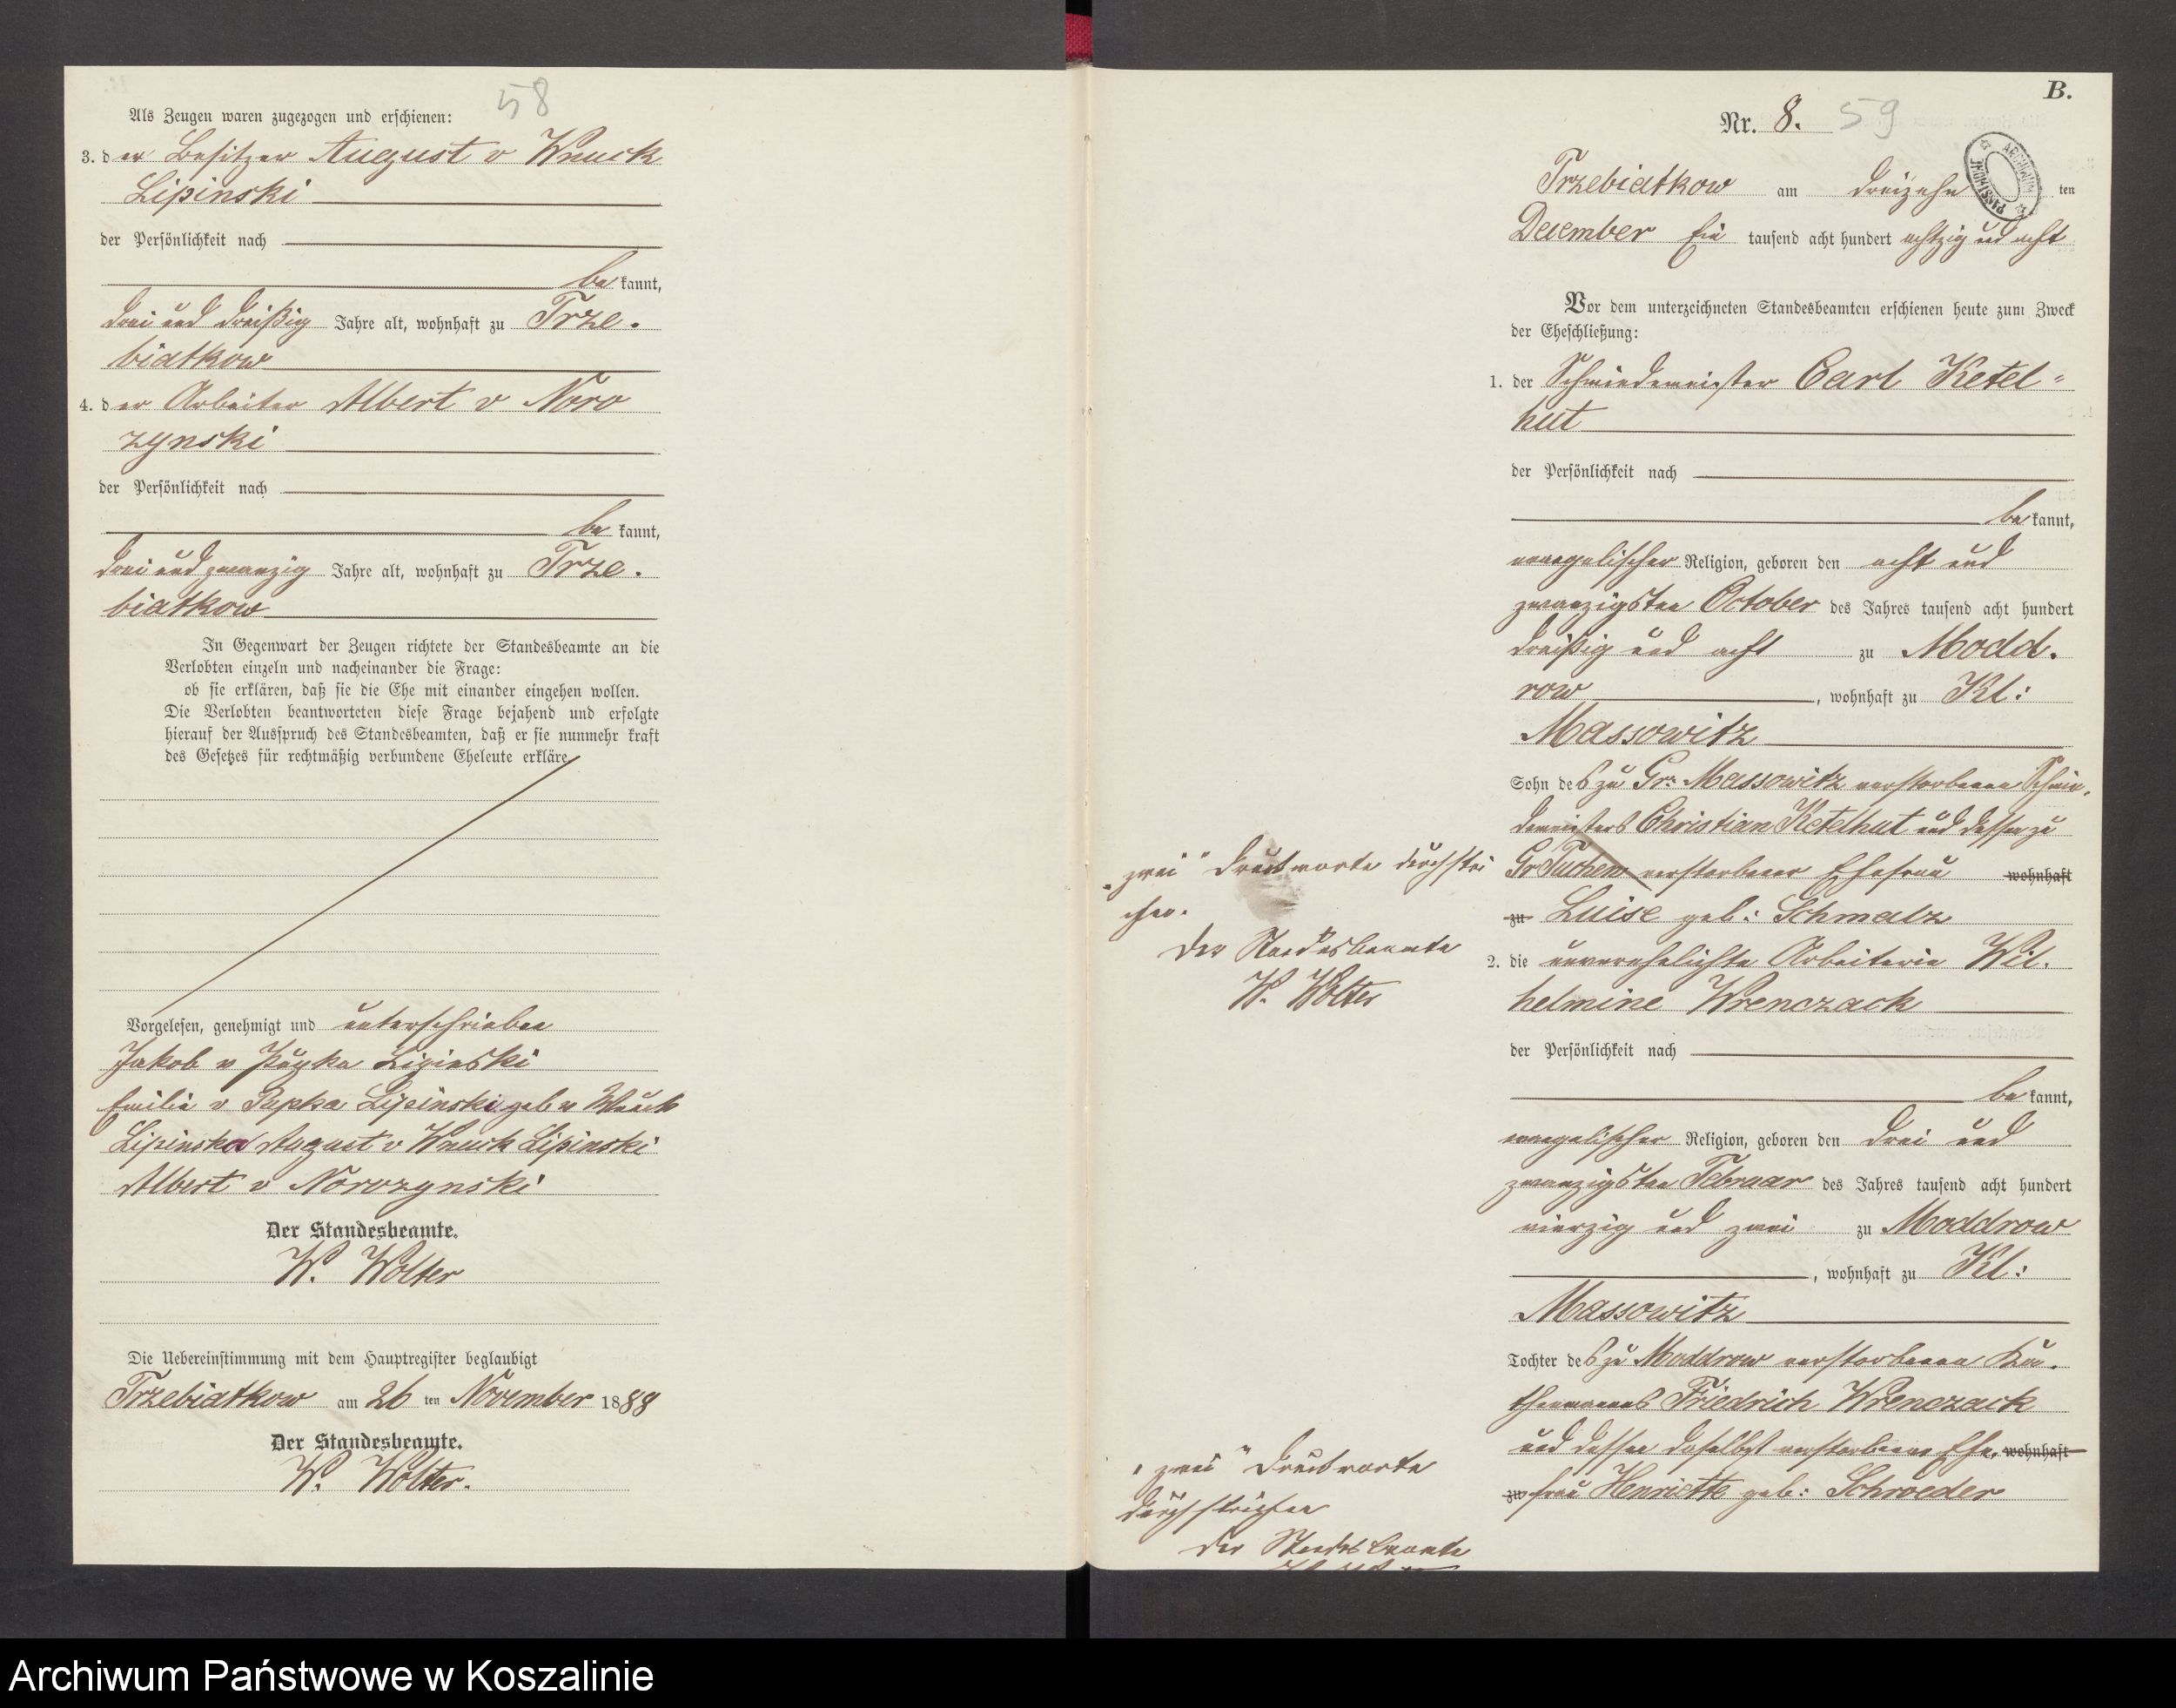 58
Als Zeugen waren zugezogen und erschienen:
3. der Besitzer August v Wnuck
Lipinski
der Persönlichkeit nach
be kannt,
drei und dreißig Jahre alt, wohnhaft zu Trze.
biatkow
4. der Arbeiter Albert v Noro
zynski
der Persönlichkeit nach
be kannt,
drei und zwanzig Jahre alt, wohnhaft zu Trze.
biatkow
In Gegenwart der Zeugen richtete der Standesbeamte an die
Verlobten einzeln und nacheinander die Frage:
ob sie erklären, daß sie die Ehe mit einander eingehen wollen.
Die Verlobten beantworteten diese Frage bejahend und erfolgte
hierauf der Ausspruch des Standesbeamten, daß er sie nunmehr kraft
des Gesetzes für rechtmäßig verbundene Eheleute erkläre.
Vorgelesen, genehmigt und unterschrieben
Jakob v Pupka Lipinski
Emilie v Pupka Lipinski geb v Wnuck
Lipinska August v Wnuck Lipinski
Albert v Norozynski
Der Standesbeamte.
W. Wolter
Die Uebereinstimmung mit dem Hauptregister beglaubigt
Trzebiatkow am 26 ten November 1888
Der Standesbeamte.
W. Wolter.
B.
Nr. 8. 59
Trzebiatkow am dreizehn ten
December Ein tausend acht hundert achtzig und acht
Vor dem unterzeichneten Standesbeamten erschienen heute zum Zweck
der Eheschließung:
1. der Schmiedemeister Carl Ketel=
hut
der Persönlichkeit nach
be kannt,
evangelischer Religion, geboren den acht und
zwanzigsten October des Jahres tausend acht hundert
dreißig und acht zu Modd.
row, wohnhaft zu Kl:
Massowitz
Sohn des zu Gr. Massowitz verstorbenen Schmie.
demeisters Christian Ketelhut und dessen zu
Gr Tuchen verstorbener Ehefrau wohnhaft
zu Luise geb: Schmalz
2. die unverehelichte Arbeiterin Wil.
helmine Wrenczack
der Persönlichkeit nach
be kannt,
evangelischer Religion, geboren den drei und
zwanzigsten Februar des Jahres tausend acht hundert
vierzig und zwei zu Moddrow
, wohnhaft zu Kl:
Massowitz
Tochter des zu Moddrow verstorbenen Ka.
thenmanns Friedrich Wrenczack
und dessen daselbst verstorbene Ehe. wohnhaft
zu frau Henriette geb: Schroeder
„zwei" Druckworte durchstri
chen.
Der Standesbeamte
W. Wolter
„zwei" Druckworte
durchstrichen
Der Standesbeamte
ARCHIWUM PAŃSTWOWE
Archiwum Państwowe w Koszalinie